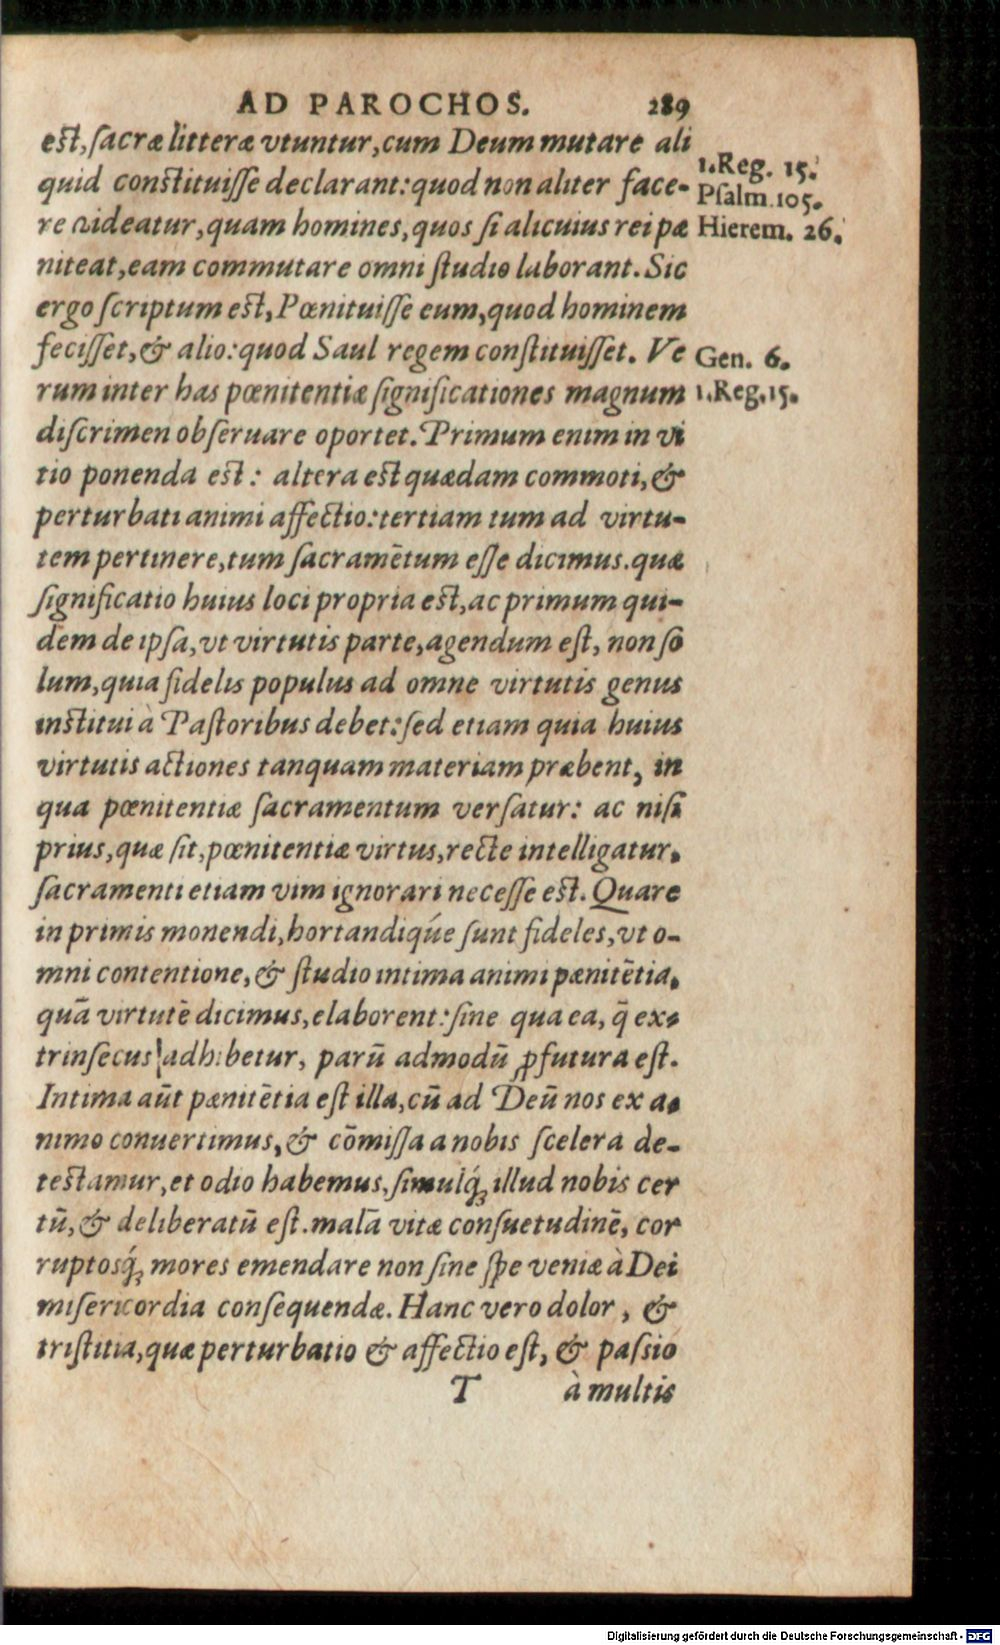 AD PAROCHOS. 289
est, sacræ litteræ vtuntur, cum Deum mutare ali
quid constituisse declarant: quod non aliter face-
re videatur, quam homines, quos si alicuius rei pæ
niteat, eam commutare omni studio laborant. Sic
ergo scriptum est, Pœnituisse eum, quod hominem
fecisset, & alio: quod Saul regem constituisset. Ve
rum inter has pœnitentiæ significationes magnum
discrimen obseruare oportet. Primum enim in vi
tio ponenda est: altera est quædam commoti, &
perturbati animi affectio: tertiam tum ad virtu-
tem pertinere, tum sacramẽtum esse dicimus. quæ
significatio huius loci propria est, ac primum qui-
dem de ipsa, vt virtutis parte, agendum est, non so
lum, quia fidelis populus ad omne virtutis genus
institui à Pastoribus debet: sed etiam quia huius
virtutis actiones tanquam materiam præbent, in
qua pœnitentiæ sacramentum versatur: ac nisi
prius, quæ sit, pœnitentiæ virtus, recte intelligatur,
sacramenti etiam vim ignorari necesse est. Quare
in primis monendi, hortandiqúe sunt fideles, vt o-
mni contentione, & studio intima animi pænitẽtia,
quã virtutẽ dicimus, elaborent: sine qua ea, q̃ ex-
trinsecus adhibetur, parũ admodũ ꝓfutura est.
Intima aũt pænitẽtia est illa, cũ ad Deũ nos ex a-
nimo conuertimus, & cõmissa a nobis scelera de-
testamur, et odio habemus, simulq́ꝫ illud nobis cer
tũ, & deliberatũ est. malã vitæ consuetudinẽ, cor
ruptosq́ꝫ mores emendare non sine spe veniæ à Dei
misericordia consequendæ. Hanc vero dolor, &
tristitia, quæ perturbatio & affectio est, & passio
T à multis
1. Reg. 15.
Psalm. 105.
Hierem. 26.
Gen. 6.
1. Reg. 15.
Digitalisierung gefördert durch die Deutsche Forschungsgemeinschaft - DFG